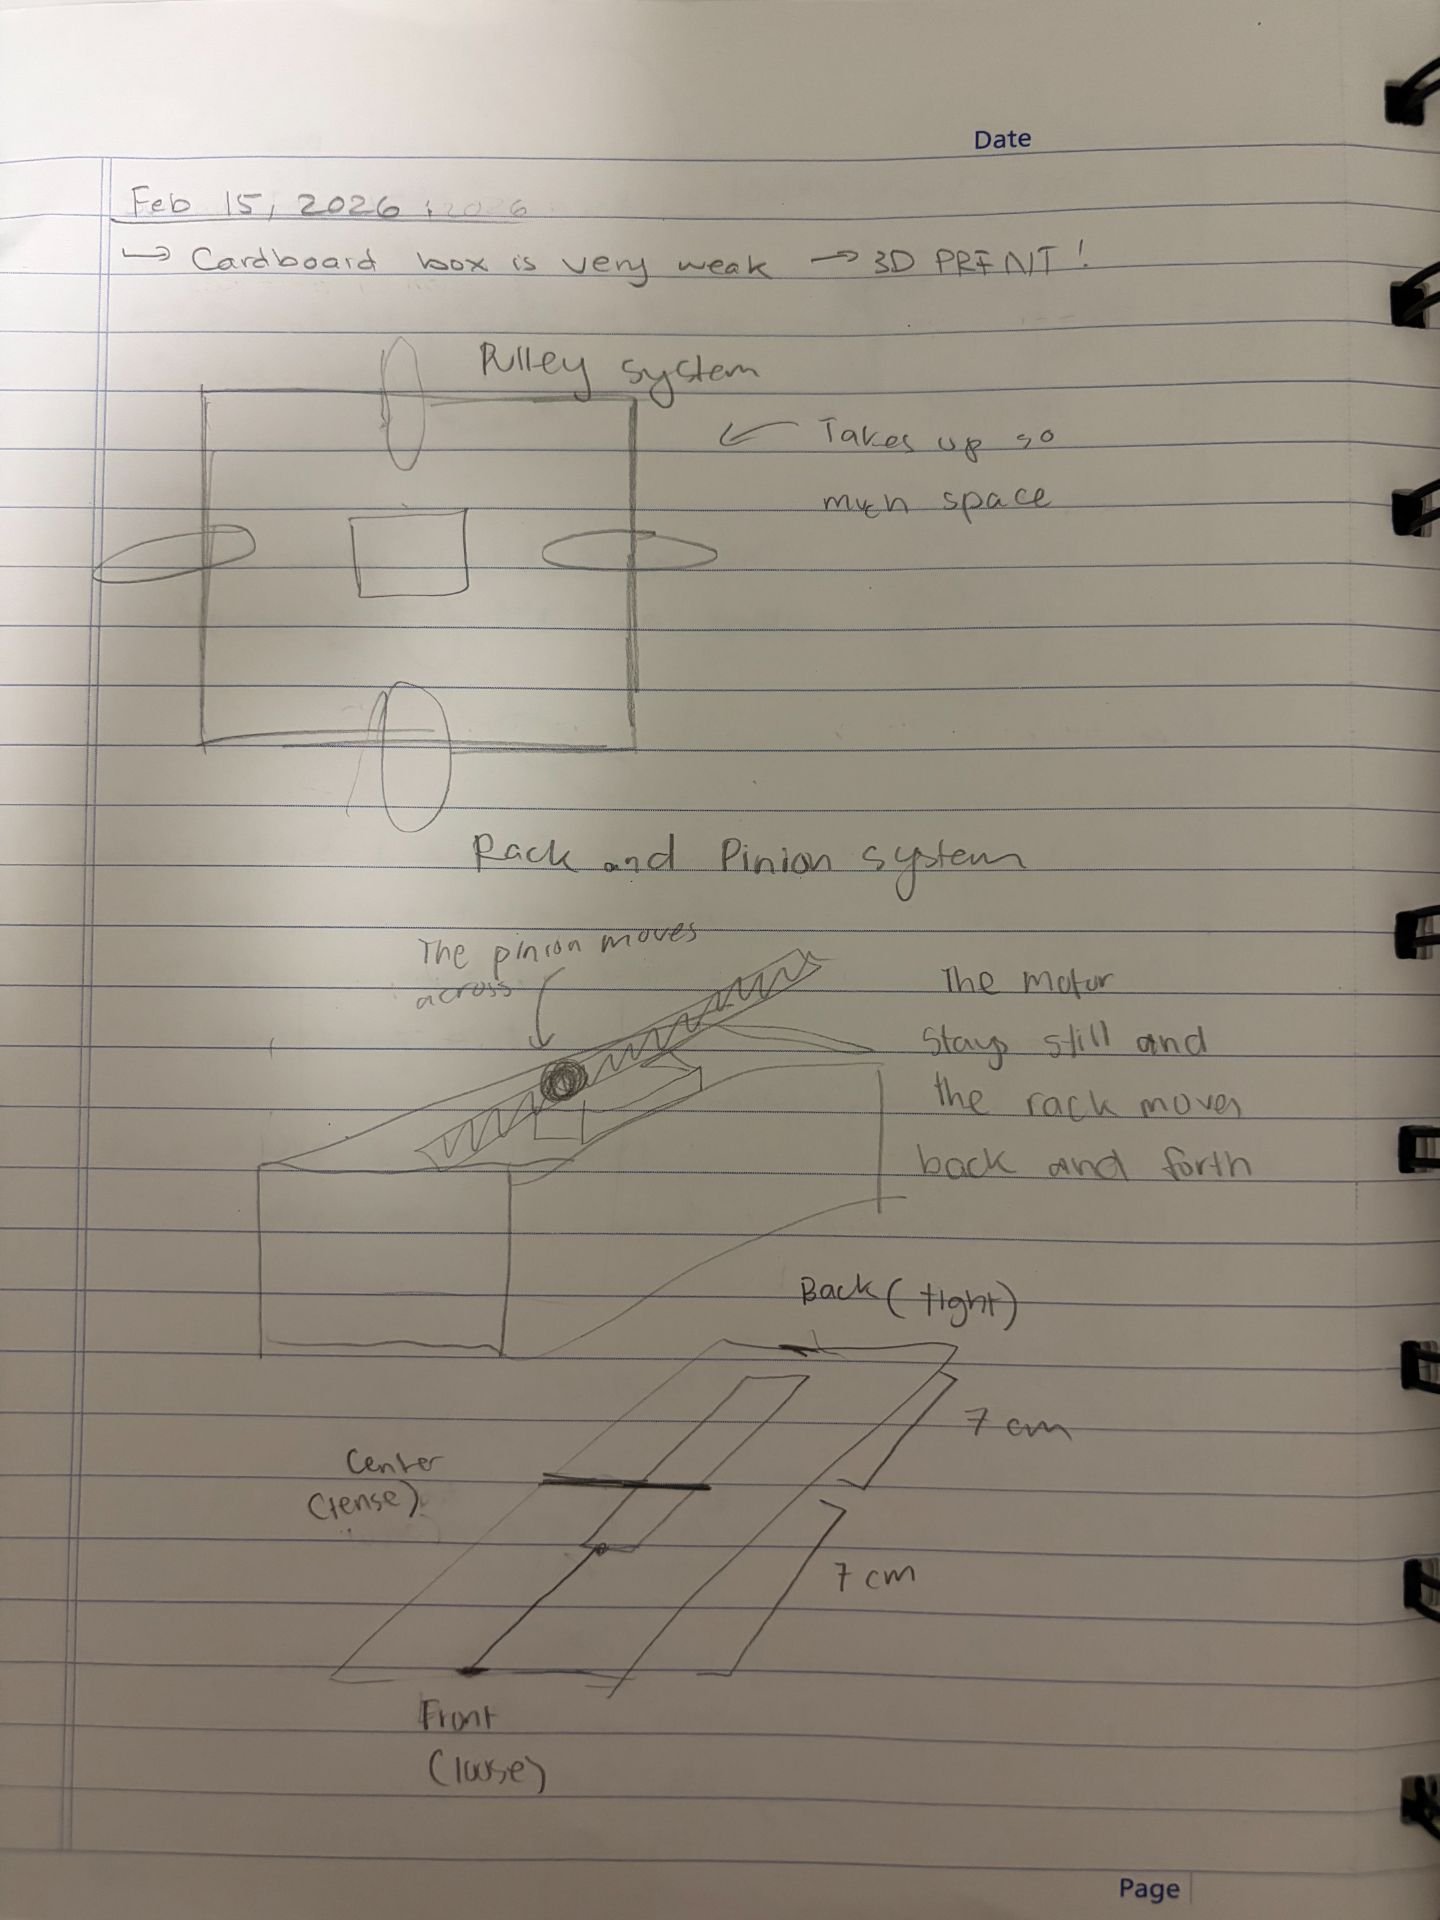 Date
Feb 15, 2026
↳ Cardboard box is very weak → 3D PRINT!
Pulley system
← Takes up so
much space
Rack and Pinion system
The pinion moves
across
The motor
stays still and
the rack moves
back and forth
Back (tight)
7 cm
Center
(tense)
7 cm
Front
(loose)
Page